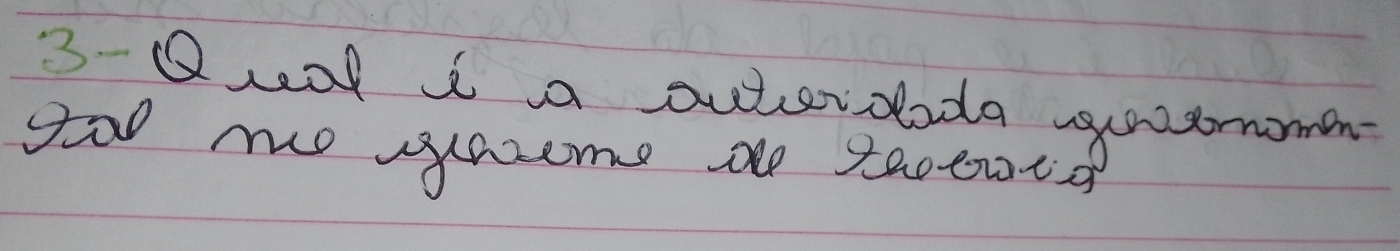 3- Qual é a autoridada governamen-
tal no governo de teocracia